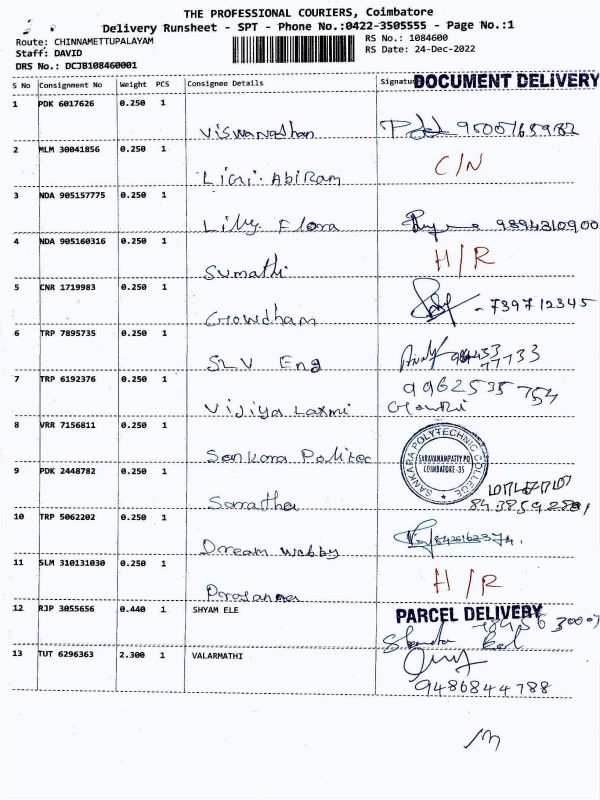 THE PROFESSIONAL COURIERS, Coimbatore
Delivery Runsheet - SPT - Phone No.:0422-3505555 - Page No.:1
Route: CHINNAMETTUPALAYAM
RS No.: 1084600
Staff: DAVID
RS Date: 24-Dec-2022
DRS No.: DCJB108460001
S No Consignment No Weight PCS Consignee Details Signature DOCUMENT DELIVERY
1 PDK 6017626 0.250 1
Viswanathan
2 MLM 30041856 0.250 1 C/N
Ligi. Abi Ram
3 NDA 905157775 0.250 1
Lilly. Flora 9894310900
4 NDA 905160316 0.250 1 H/R
Sumathi
5 CNR 1719983 0.250 1 - 739712345
Gowdham
6 TRP 7895735 0.250 1
SLV Eng
7 TRP 6192376 0.250 1 9962535754
Vijiya Laxmi Gowri
8 VRR 7156811 0.250 1
SANKARA POLYTECHNIC COLLEGE
SARAVANAMPATTY PO
COIMBATORE-35
Sankara Politec
9 PDK 2448782 0.250 1
Saratha
10 TRP 5062202 0.250 1
Dream Webby
11 SLM 310131030 0.250 1 H/R
Prasanna
12 RJP 3055656 0.440 1 SHYAM ELE PARCEL DELIVERY
13 TUT 6296363 2.300 1 VALARMATHI
9486844788